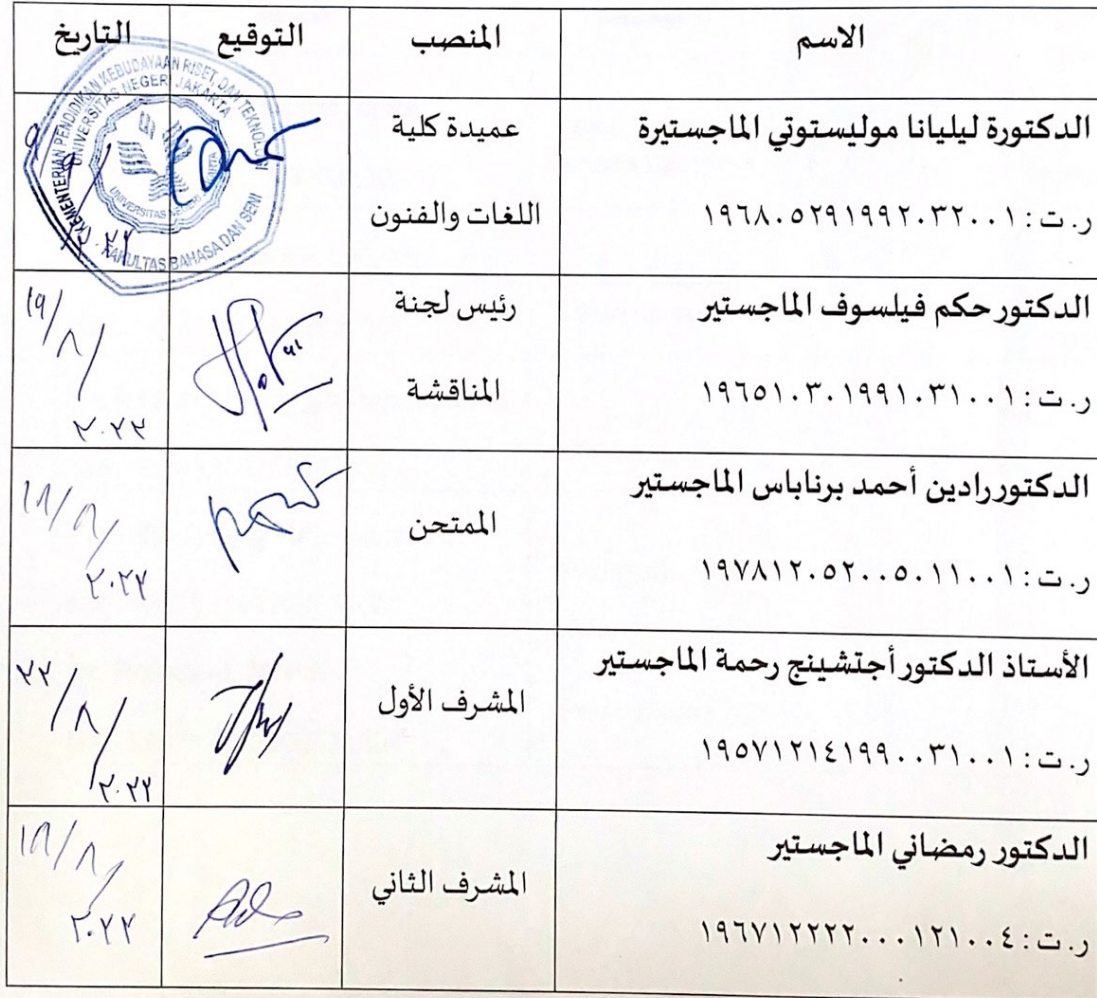 الاسم المنصب التوقيع التاريخ
الدكتورة ليليانا موليستوتي الماجستيرة
ر. ت: ١٩٦٨٠٥٢٩١٩٩٢٠٣٢٠٠١
عميدة كلية
اللغات والفنون
KEMENTERIAN PENDIDIKAN KEBUDAYAAN RISET, DAN TEKNOLOGI
UNIVERSITAS NEGERI JAKARTA
FAKULTAS BAHASA DAN SENI
الدكتور حكم فيلسوف الماجستير
ر. ت: ١٩٦٥١٠٣٠١٩٩١٠٣١٠٠١
رئيس لجنة
المناقشة
١٩/٨/
٢٠٢٢
الدكتور رادين أحمد برناباس الماجستير
ر. ت: ١٩٧٨١٢٠٥٢٠٠٥٠١١٠٠١
الممتحن
١٨/٨/
٢٠٢٢
الأستاذ الدكتور أجتشينج رحمة الماجستير
ر. ت: ١٩٥٧١٢١٤١٩٩٠٠٣١٠٠١
المشرف الأول
٢٢/٨/
٢٠٢٢
الدكتور رمضاني الماجستير
ر. ت: ١٩٦٧١٢٢٢٢٠٠٠١٢١٠٠٤
المشرف الثاني
١٨/٨/
٢٠٢٢